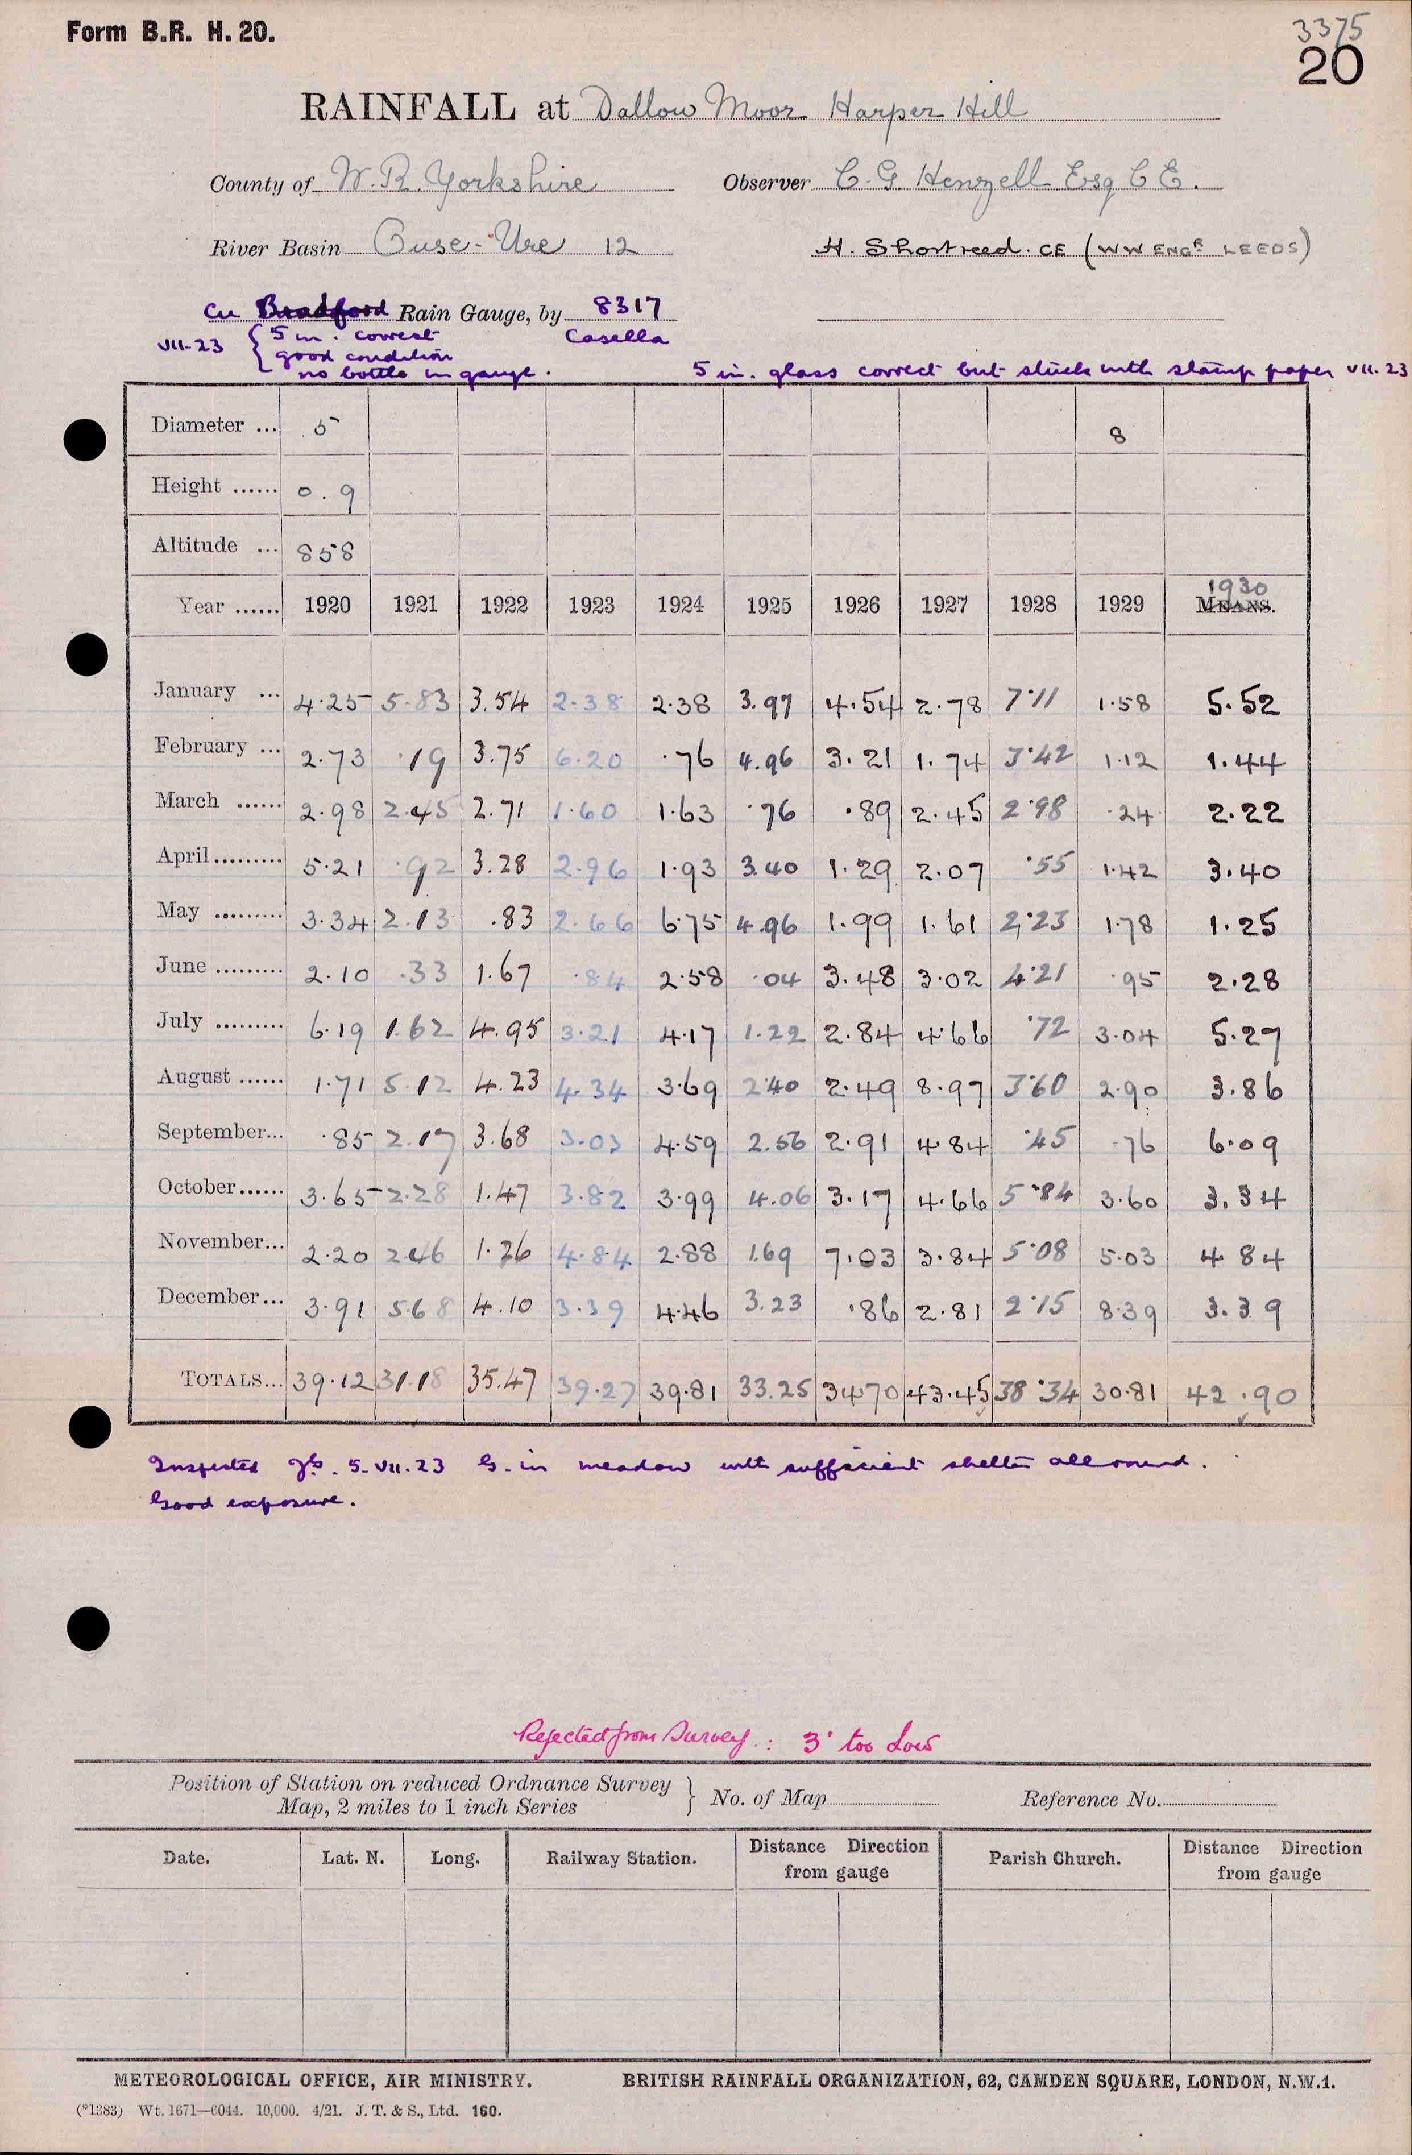 Form B.R. H. 20.
3375
20
RAINFALL at Dallow Moor Harper Hill
County of W. R. Yorkshire Observer C. G. Henzell Esq C E.
River Basin Ouse-Ure 12 H. Shortreed. CE (WW ENGR LEEDS)
Cu Bradford Rain Gauge, by 8317
VII-23 { 5 in. correct Casella
good condition
no bottle in gauge. 5 in. glass correct but stuck with stamp paper VII. 23
Diameter ... 5 8
Height ...... 0.9
Altitude ... 858
Year ...... 1920 1921 1922 1923 1924 1925 1926 1927 1928 1929 1930 MEANS.
January ... 4.25 5.83 3.54 2.38 2.38 3.97 4.54 2.78 7.11 1.58 5.52
February ... 2.73 .19 3.75 6.20 .76 4.96 3.21 1.74 3.42 1.12 1.44
March ...... 2.98 2.45 2.71 1.60 1.63 .76 .89 2.45 2.98 .24 2.22
April......... 5.21 .92 3.28 2.96 1.93 3.40 1.29 2.07 .55 1.42 3.40
May ......... 3.34 2.13 .83 2.66 6.75 4.96 1.99 1.61 2.23 1.78 1.25
June ......... 2.10 .33 1.67 .84 2.58 .04 3.48 3.02 4.21 .95 2.28
July ......... 6.19 1.62 4.95 3.21 4.17 1.22 2.84 4.66 .72 3.04 5.27
August ...... 1.71 5.12 4.23 4.34 3.69 2.40 2.49 8.97 3.60 2.90 3.86
September... .85 2.17 3.68 3.03 4.59 2.56 2.91 4.84 .45 .76 6.09
October...... 3.65 2.28 1.47 3.82 3.99 4.06 3.17 4.66 5.84 3.60 3.34
November... 2.20 2.46 1.26 4.84 2.88 1.69 7.03 3.84 5.08 5.03 4 84
December... 3.91 5.68 4.10 3.39 4.46 3.23 .86 2.81 2.15 8.39 3.39
TOTALS... 39.12 31.18 35.47 39.27 39.81 33.25 34.70 43.45 38.34 30.81 42.90
Inspected 5. VII. 23 G. in meadow with sufficient shelter all round.
Good exposure.
Rejected from Survey : 3" too low
Position of Station on reduced Ordnance Survey
Map, 2 miles to 1 inch Series } No. of Map Reference No.
Date. Lat. N. Long. Railway Station. Distance Direction from gauge Parish Church. Distance Direction from gauge
METEOROLOGICAL OFFICE, AIR MINISTRY. BRITISH RAINFALL ORGANIZATION, 62, CAMDEN SQUARE, LONDON, N.W.1.
(*1383) Wt. 1671—6044. 10,000. 4/21. J. T. & S., Ltd. 160.